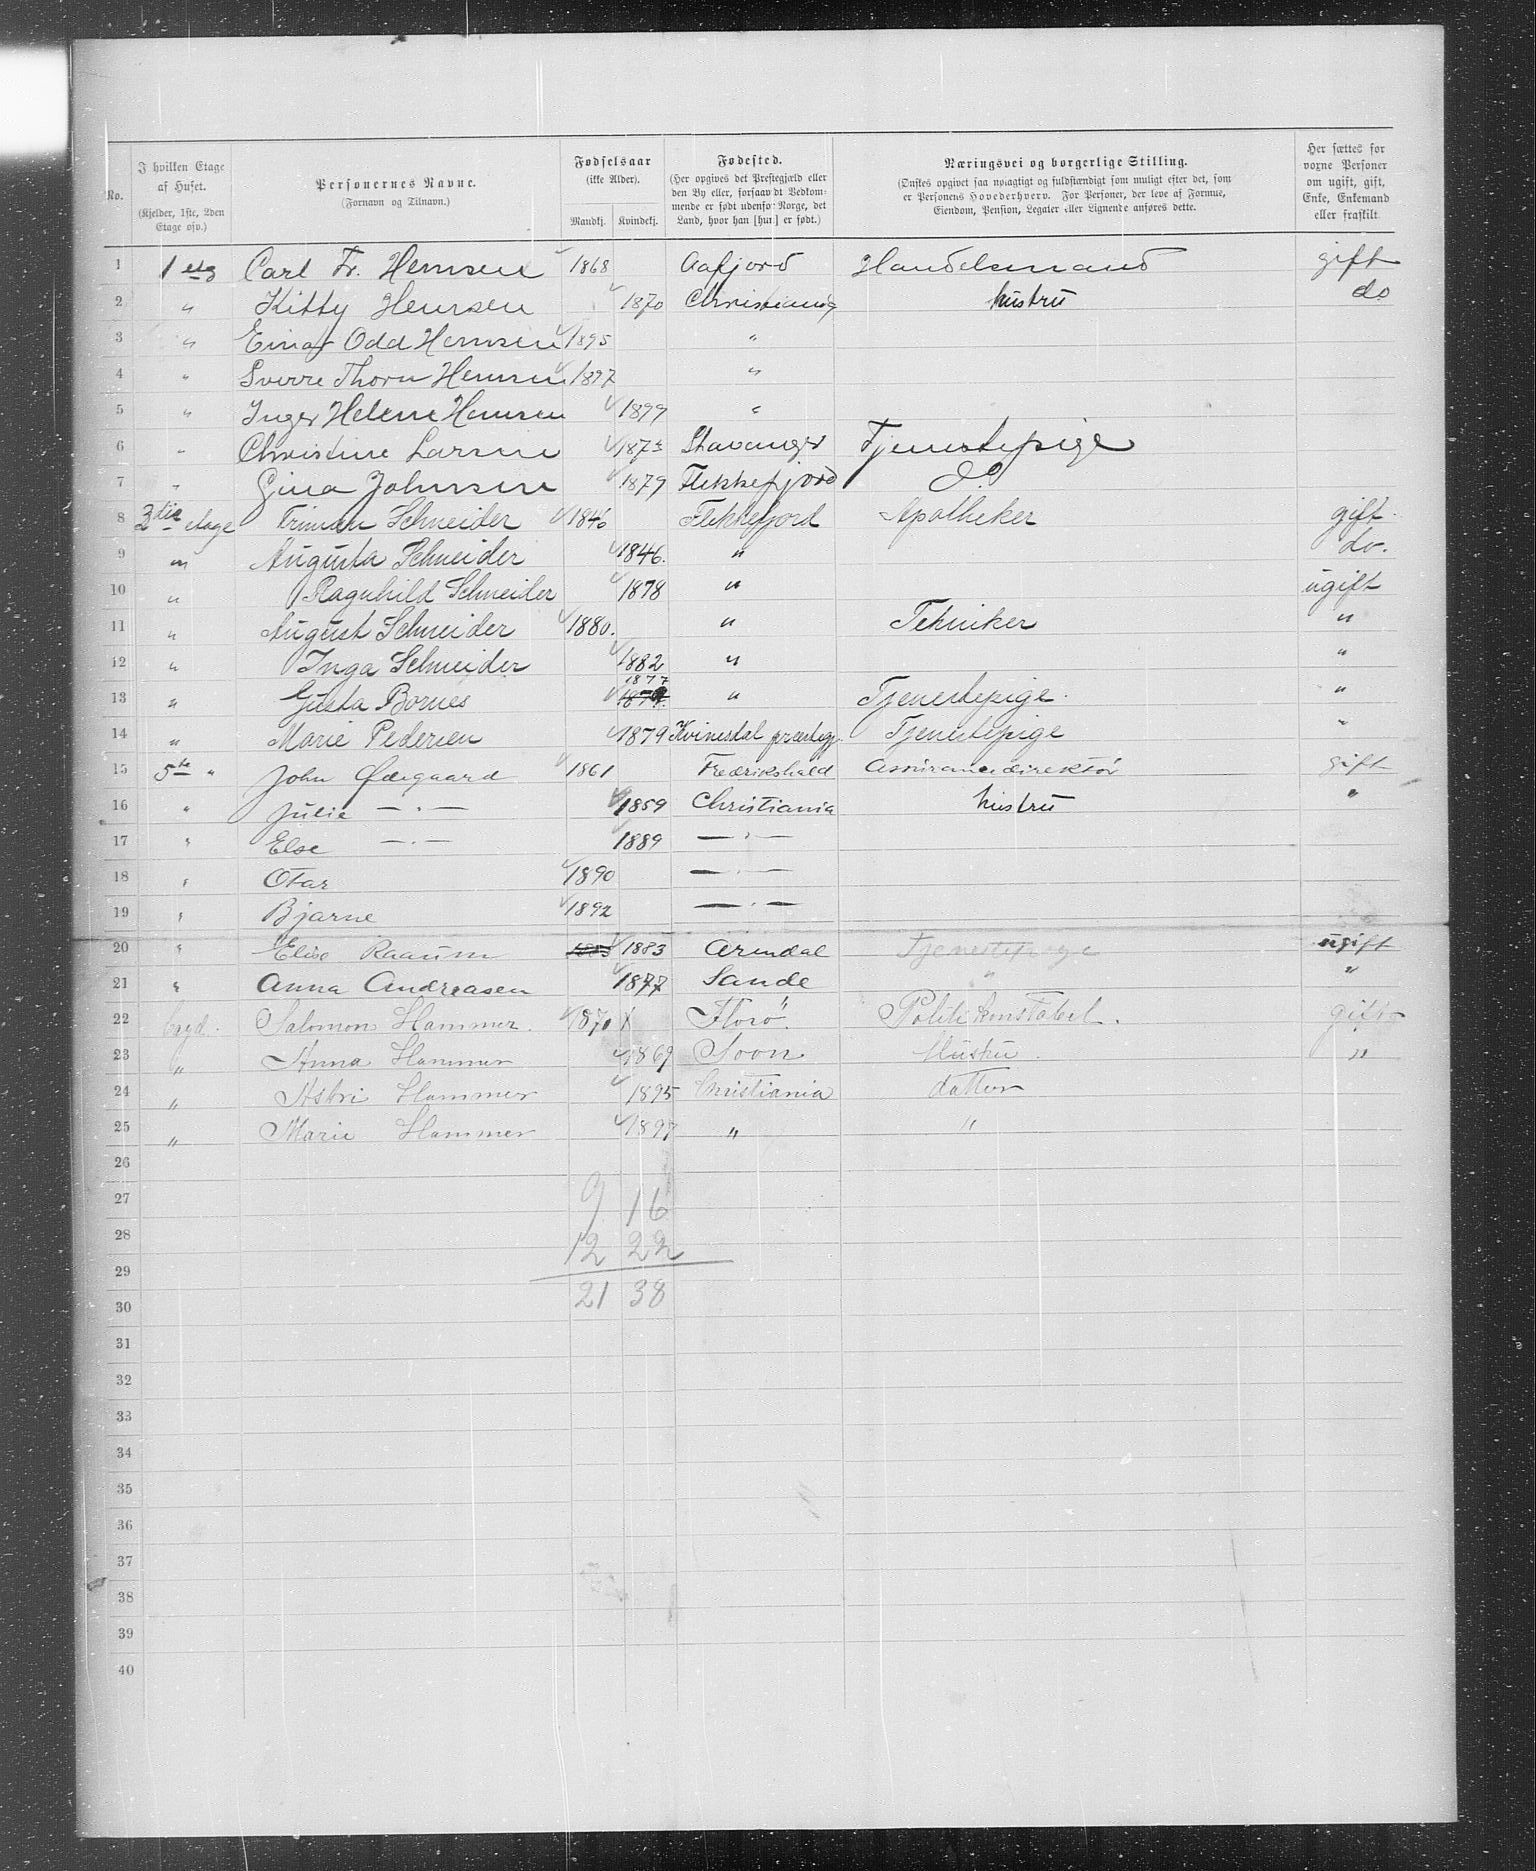 No.
I hvilken Etage af Huset.
(Kjelder, 1ste, 2den Etage osv.)
Personernes Navne.
(Fornavn og Tilnavn.)
Fødselsaar
(ikke Alder).
Mandkj. Kvindekj.
Fødested.
(Her opgives det Prestegjæld eller den By eller, forsaavidt Vedkommende er født udenfor Norge, det Land, hvor han [hun] er født.)
Næringsvei og borgerlige Stilling.
(Ønskes opgivet saa nøiagtigt og fuldstændigt som muligt efter det, som er Personens Hovederhverv. For Personer, der leve af Formue, Eiendom, Pension, Legater eller Lignende anføres dette.
Her sættes for voxne Personer om ugift, gift, Enke, Enkemand eller fraskilt
1 1 etg Carl Fr. Hemsen 1868 Aafjord Handelsmand gift
2 " Kitty Hemsen 1870 Christiania hustru do
3 " Einar Odd Hemsen 1895 "
4 " Sverre Thorn Hemsen 1897 "
5 " Inger Helene Hemsen 1899 "
6 " Christine Larsen 1873 Stavanger Tjenestepige
7 " Gina Johnsen 1879 Flekkefjord Do
8 3die etage Schneider 1846 Flekkefjord Apotheker gift.
9 " Augusta Schneider 1846. " do.
10 " Ragnhild Schneider 1878 " ugift
11 " August Schneider 1880. " Tekniker "
12 " Inga Schneider 1882 " "
13 " Gusta Bornes 1877 " Tjenestepige. "
14 " Marie Pedersen 1879 Kvinesdal præstegj. Tjenestepige "
15 5te " John Ødegaard 1861 Fredrikshald Assurancedirektør gift
16 " Julie — " — 1859 Christiania hustru "
17 " Else — " — 1889 — " —
18 " Otar 1890 — " —
19 " Bjarne 1892 — " —
20 " Elise Raaum 1883 1883 Arendal Tjenestepige ugift
21 " Anna Andreasen 1877 Sande " "
22 bagd. Salomon Hammer. 1870 Florø Politikonstabel. gift
23 " Anna Hammer 1869 Soon Hustru. "
24 " Astri Hammer 1895 Christiania datter
25 " Marie Hammer 1897 " "
26
27 9 16
28 12 22
29
30 21 38
31
32
33
34
35
36
37
38
39
40